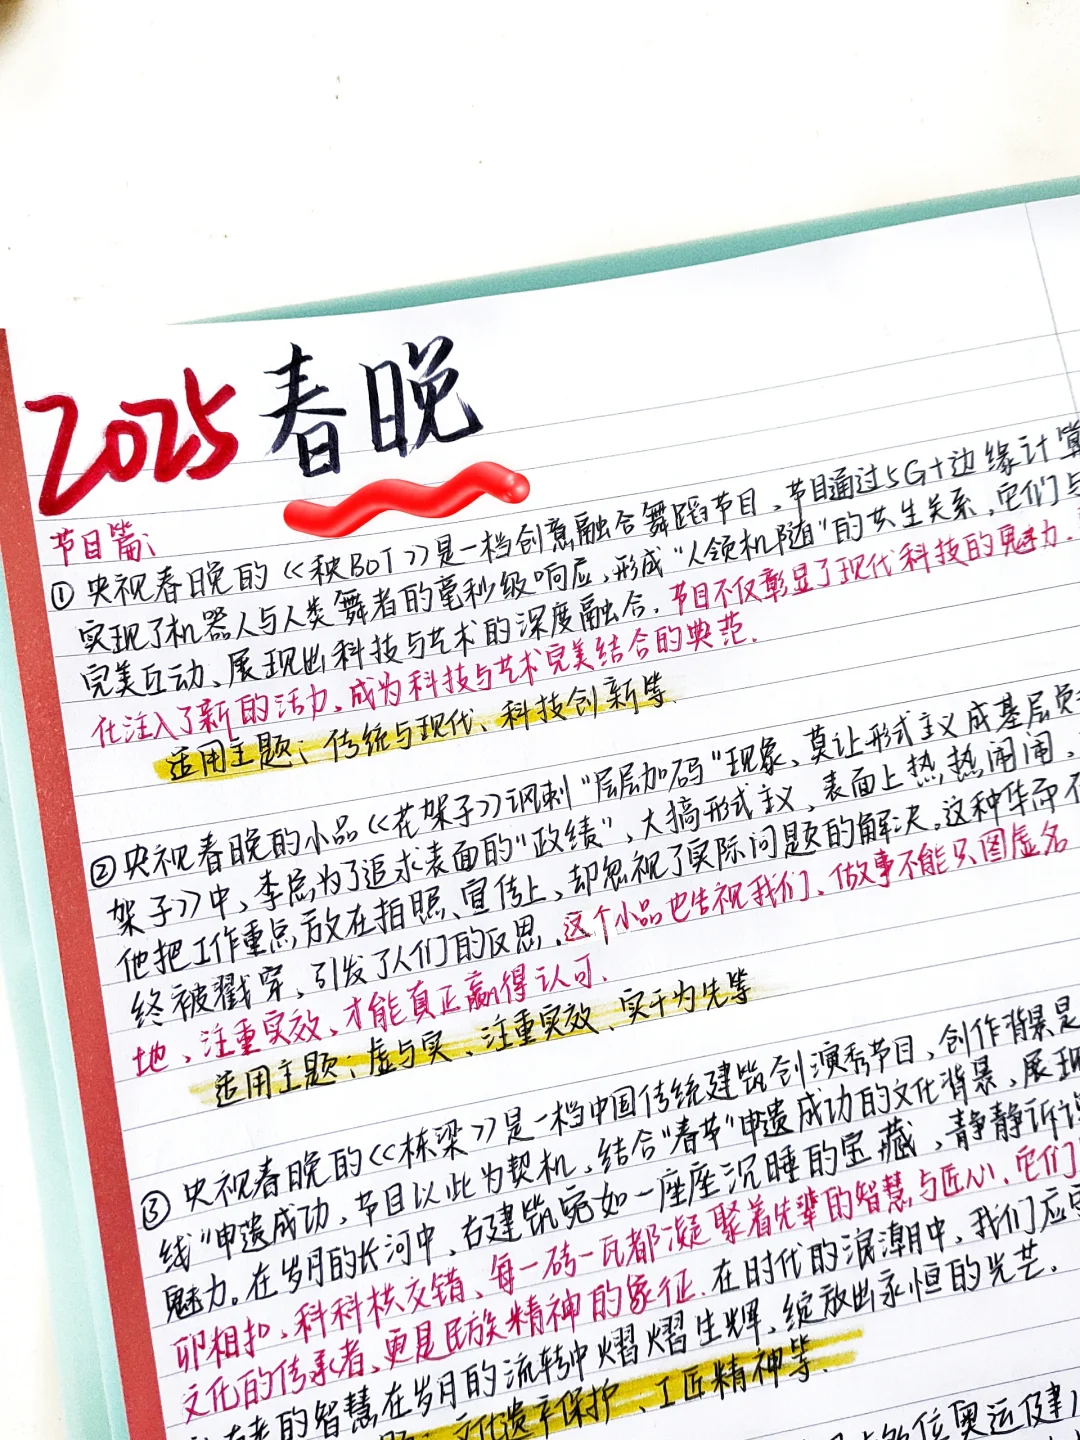 2025春晚
节目篇:
①央视春晚的《秧BOT》是一档创意融合舞蹈节目,节目通过5G+边缘计算
实现了机器人与人类舞者的毫秒级响应,形成“人领机随”的共生关系,它们与
完美互动、展现出科技与艺术的深度融合.节目不仅彰显了现代科技的魅力.
化注入了新的活力,成为科技与艺术完美结合的典范.
适用主题:传统与现代、科技创新等.
②央视春晚的小品《花架子》讽刺“层层加码”现象、莫让形式主义成基层负
架子》中,李总为了追求表面的“政绩”,大搞形式主义,表面上热热闹闹,
他把工作重点放在拍照、宣传上,却忽视了实际问题的解决。这种华而不
终被戳穿,引发了人们的反思.这个小品也告视我们、做事不能只图虚名
地、注重实效,才能真正赢得认可.
适用主题:虚与实、注重实效、实干为先等
③央视春晚的《栋梁》是一档中国传统建筑创演秀节目,创作背景是
线“申遗成功,节目以此为契机,结合“春节”申遗成功的文化背景、展现
魅力。在岁月的长河中,古建筑宛如一座座沉睡的宝藏,静静诉说
卯相扣、科科栱交错、每一砖一瓦都凝聚着先辈的智慧与匠心、它们
文化的传承者、更是民族精神的象征.在时代的浪潮中,我们应
老的智慧在岁月的流转中熠熠生辉,绽放出永恒的光芒.
文化遗产保护、工匠精神等.
位奥运健儿